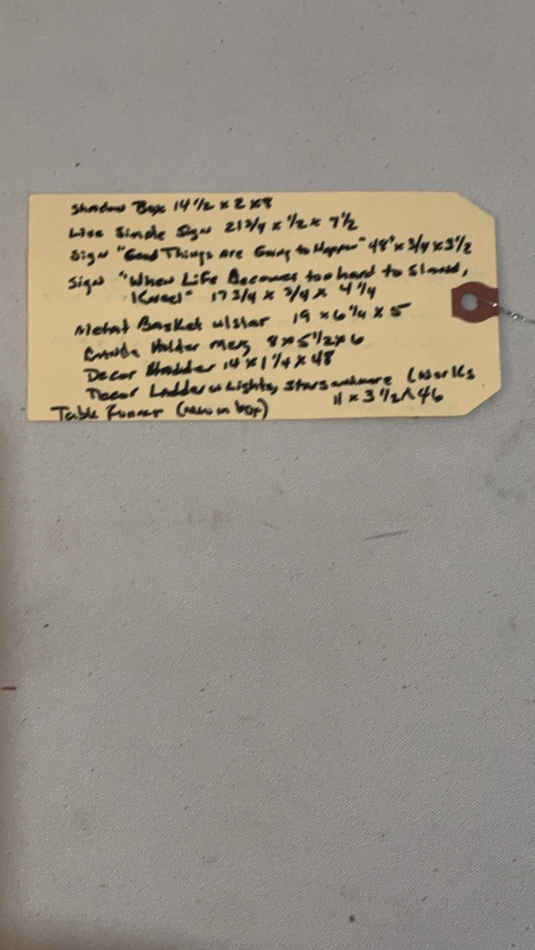 Shadow Box 14 1/2 x 2 x 8
Live Simple Sign 21 3/4 x 1/2 x 7 1/2
Sign "Good Things are Going to Happen" 48" x 3/4 x 3 1/2
Sign "When Life Becomes too hard to Stand,
Kneel" 17 3/4 x 3/4 x 4 1/4
Metal Basket w/star 19 x 6 1/4 x 5
Candle Holder 8 x 5 1/2 x 6
Decor Ladder 14 x 1 1/4 x 48
Decor Ladder w Lights, Stars (works
11 x 3 1/2 x 46
Table Runner (new in box)